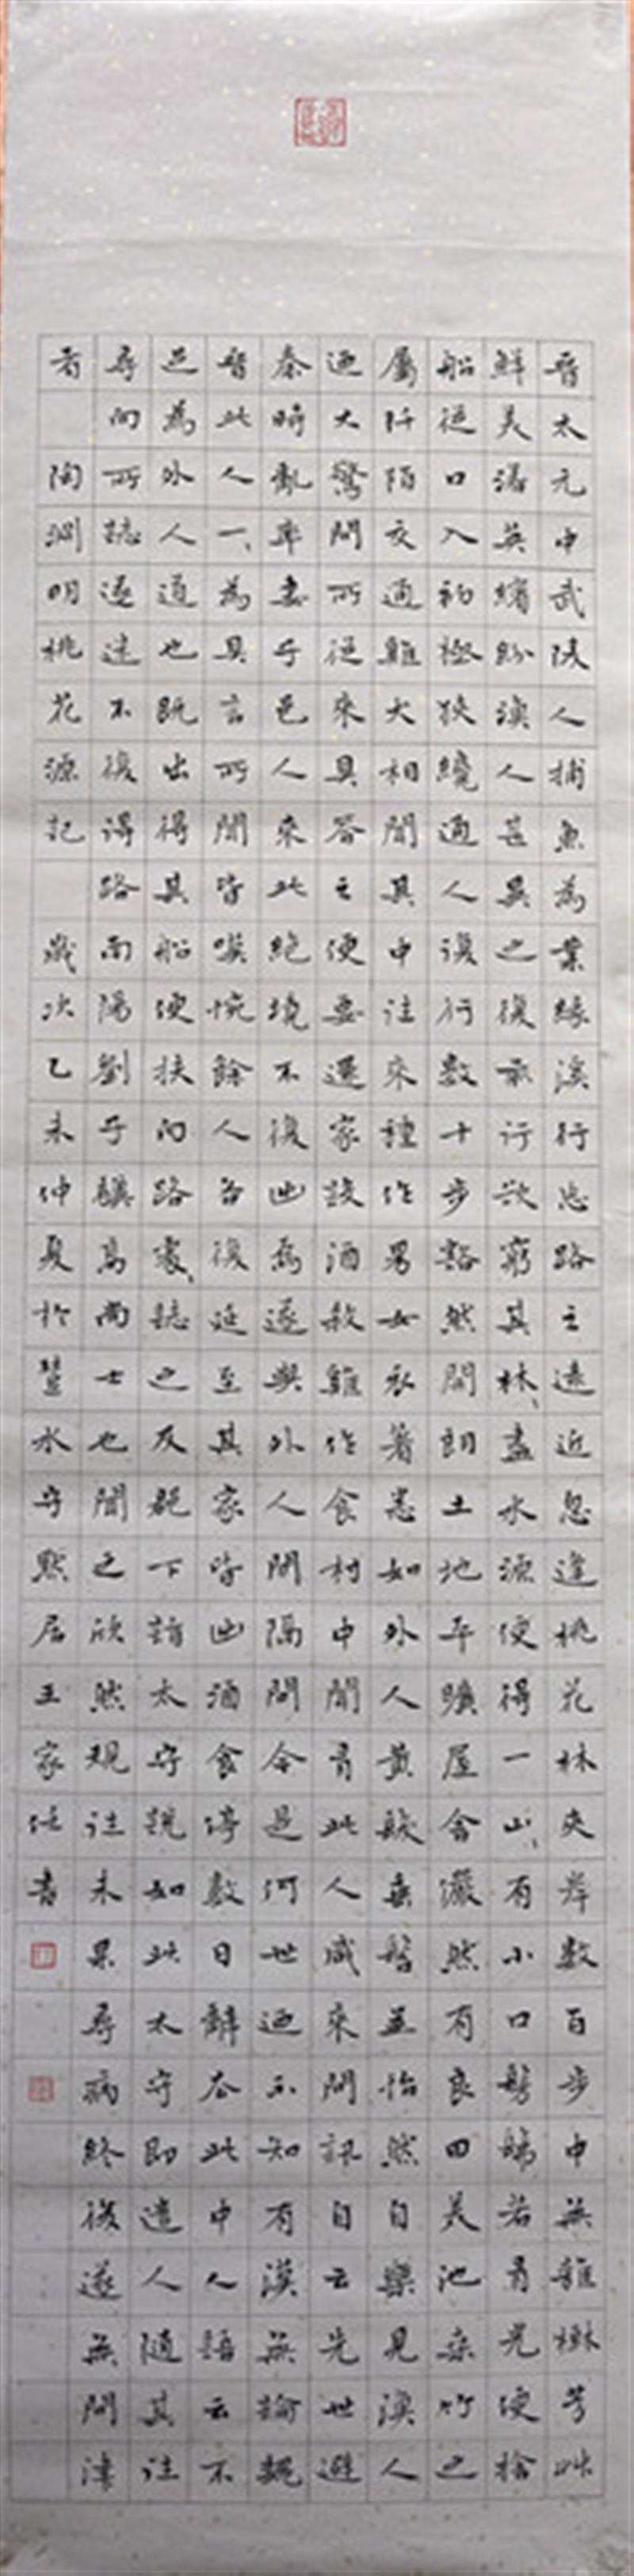 晉太元中武陵人捕魚為業緣溪行忘路之遠近忽逢桃花林夾岸數百步中無雜樹芳草
鮮美落英繽紛漁人甚異之復前行欲窮其林林盡水源便得一山山有小口髣髴若有光便捨
船從口入初極狹纔通人復行數十步豁然開朗土地平曠屋舍儼然有良田美池桑竹之
屬阡陌交通雞犬相聞其中往來種作男女衣著悉如外人黃髮垂髫並怡然自樂見漁人
迺大驚問所從來具答之便要還家設酒殺雞作食村中聞有此人咸來問訊自云先世避
秦時亂率妻子邑人來此絕境不復出焉遂與外人間隔問今是何世迺不知有漢無論魏
晉此人一一為具言所聞皆嘆惋餘人各復延至其家皆出酒食停數日辭去此中人語云不
足為外人道也既出得其船便扶向路處處誌之及郡下詣太守說如此太守即遣人隨其往
尋向所誌遂迷不復得路南陽劉子驥高尚士也聞之欣然規往未果尋病終後遂無問津
者 陶淵明桃花源記 歲次乙未仲夏於鹽水守默居王家任書